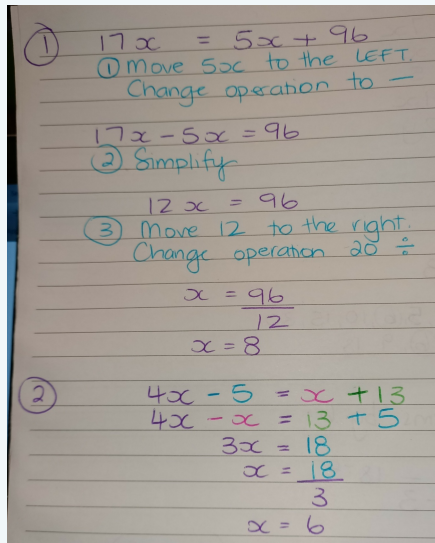 ① 17x = 5x + 96
① Move 5x to the LEFT.
Change operation to —
17x - 5x = 96
② Simplify
12x = 96
③ Move 12 to the right.
Change operation 20 ÷
x = 96
12
x = 8
② 4x - 5 = x + 13
4x - x = 13 + 5
3x = 18
x = 18
3
x = 6